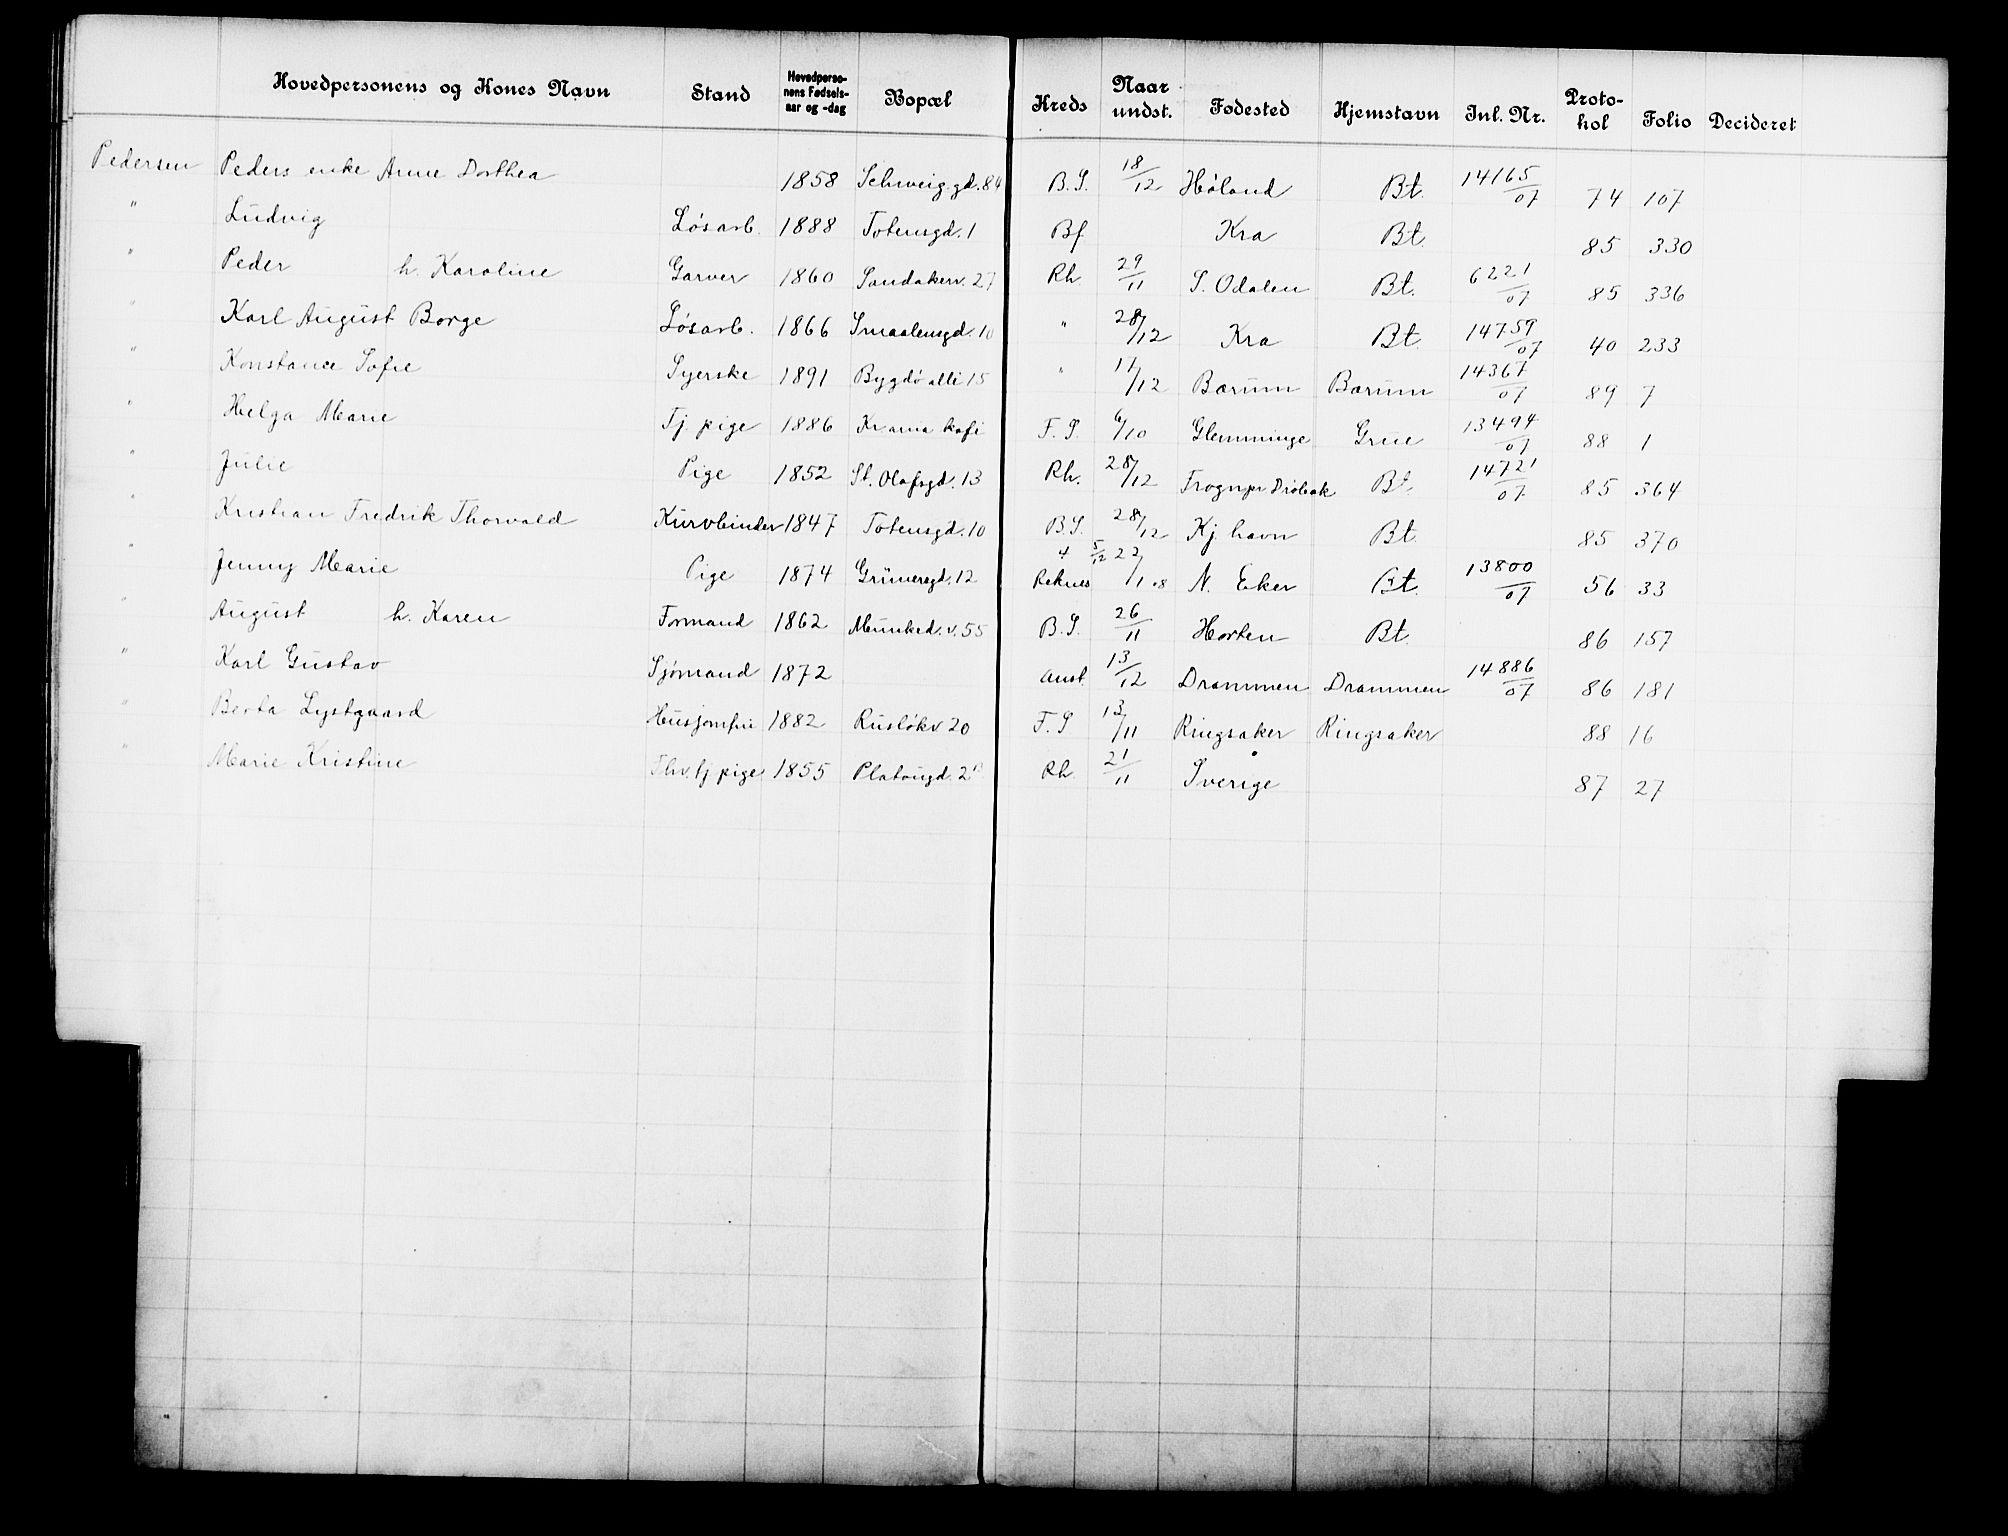 Hovedpersonens og Kones Navn Stand Hovedperso-nens Fødsels-aar og -dag Bopæl Kreds Naar undst. Fødested Hjemstavn Inl. Nr. Proto-kol Folio Decideret
Pedersen Peders enke Anne Dorthea 1858 Schweig.gd. 84 B.S. 18/12 Høland Bt. 14165/07 74 107
" Ludvig Løsarb. 1888 Totensgd. 1 Bf Kra Bt. 85 330
" Peder h. Karoline Garver 1860 Sandakerv. 27 Rh. 29/11 S. Odalen Bt. 6221/07 85 336
" Karl August Borge Løsarb. 1866 Smaalensgd. 10 " 28/12 Kra Bt. 14759/07 40 233
" Konstance Sofie Syerske 1891 Bygdø alli 15 " 17/12 Bærum Bærum 14367/07 89 7
" Helga Marie Tj. pige 1886 Krania kafe F.S. 6/10 Glemminge Grue 13494/07 88 1
" Julie Pige 1852 St. Olafsgd. 13 Rh. 28/12 Frogn pr Drøbak Bt. 14721/07 85 364
" Kristian Fredrik Thorvald Kurvbinder 1847 Totensgd. 10 B.S. 28/12 Kj. havn Bt. 85 370
" Jenny Marie Pige 1874 Grünersgd. 12 4 Reknes 5/12 22/1 08 N. Eker Bt. 13800/07 56 33
" August h. Karen Formand 1862 Munked. v. 55 B.S. 26/11 Horten Bt. 86 157
" Karl Gustav Sjømand 1872 anst. 13/12 Drammen Drammen 14886/07 86 181
" Berta Lystgaard Husjomfru 1882 Rusløkv 20 F.S 13/11 Ringsaker Ringsaker 88 16
" Marie Kristine Fhv. tj pige 1855 Platougd. Rh. 21/11 Sverige 87 27